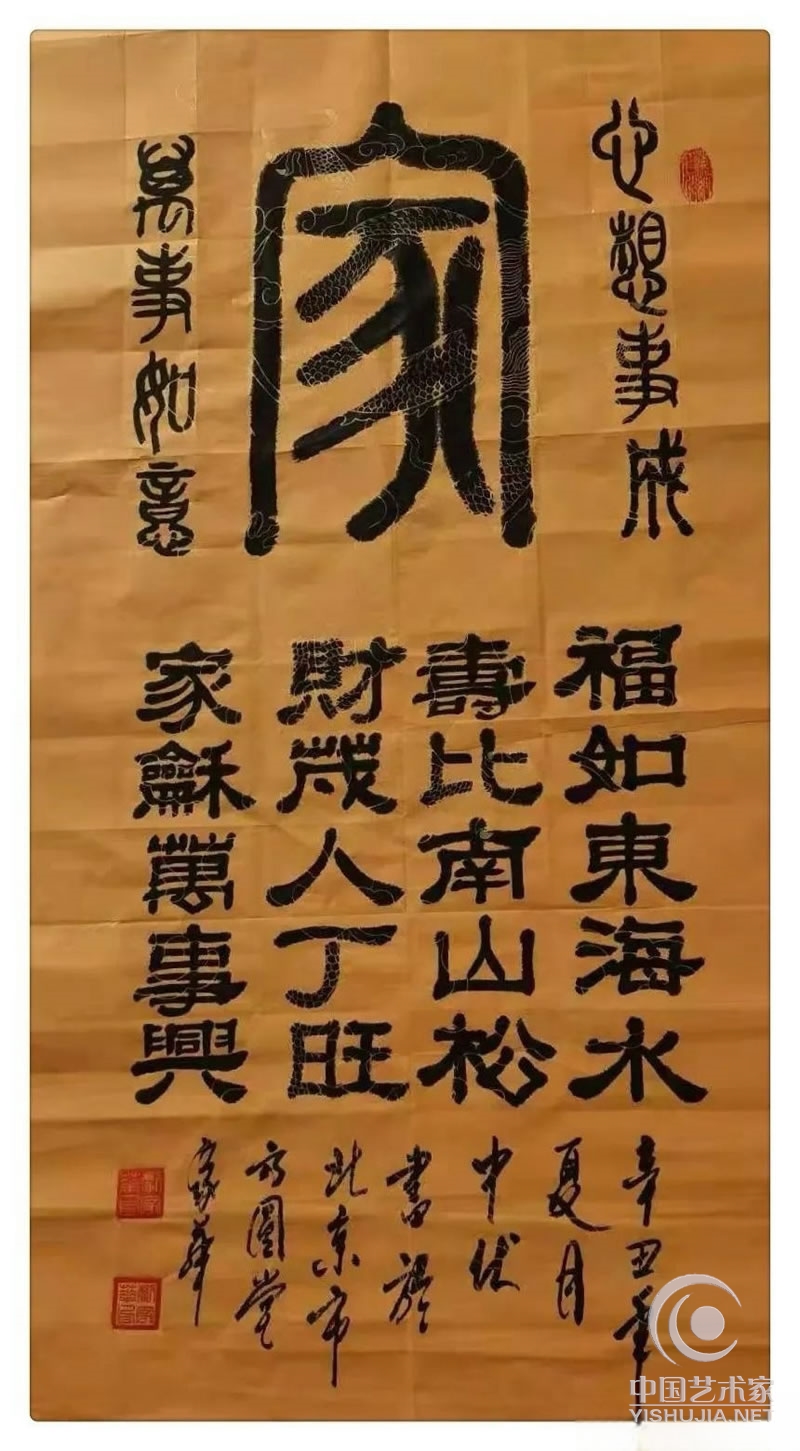 心想事成
家
萬事如意
福如東海水
壽比南山松
財茂人丁旺
家龢萬事興
辛丑年
夏月
中伏
書於
北京市
方圓堂
家華
中国艺术家
YISHUJIA.NET